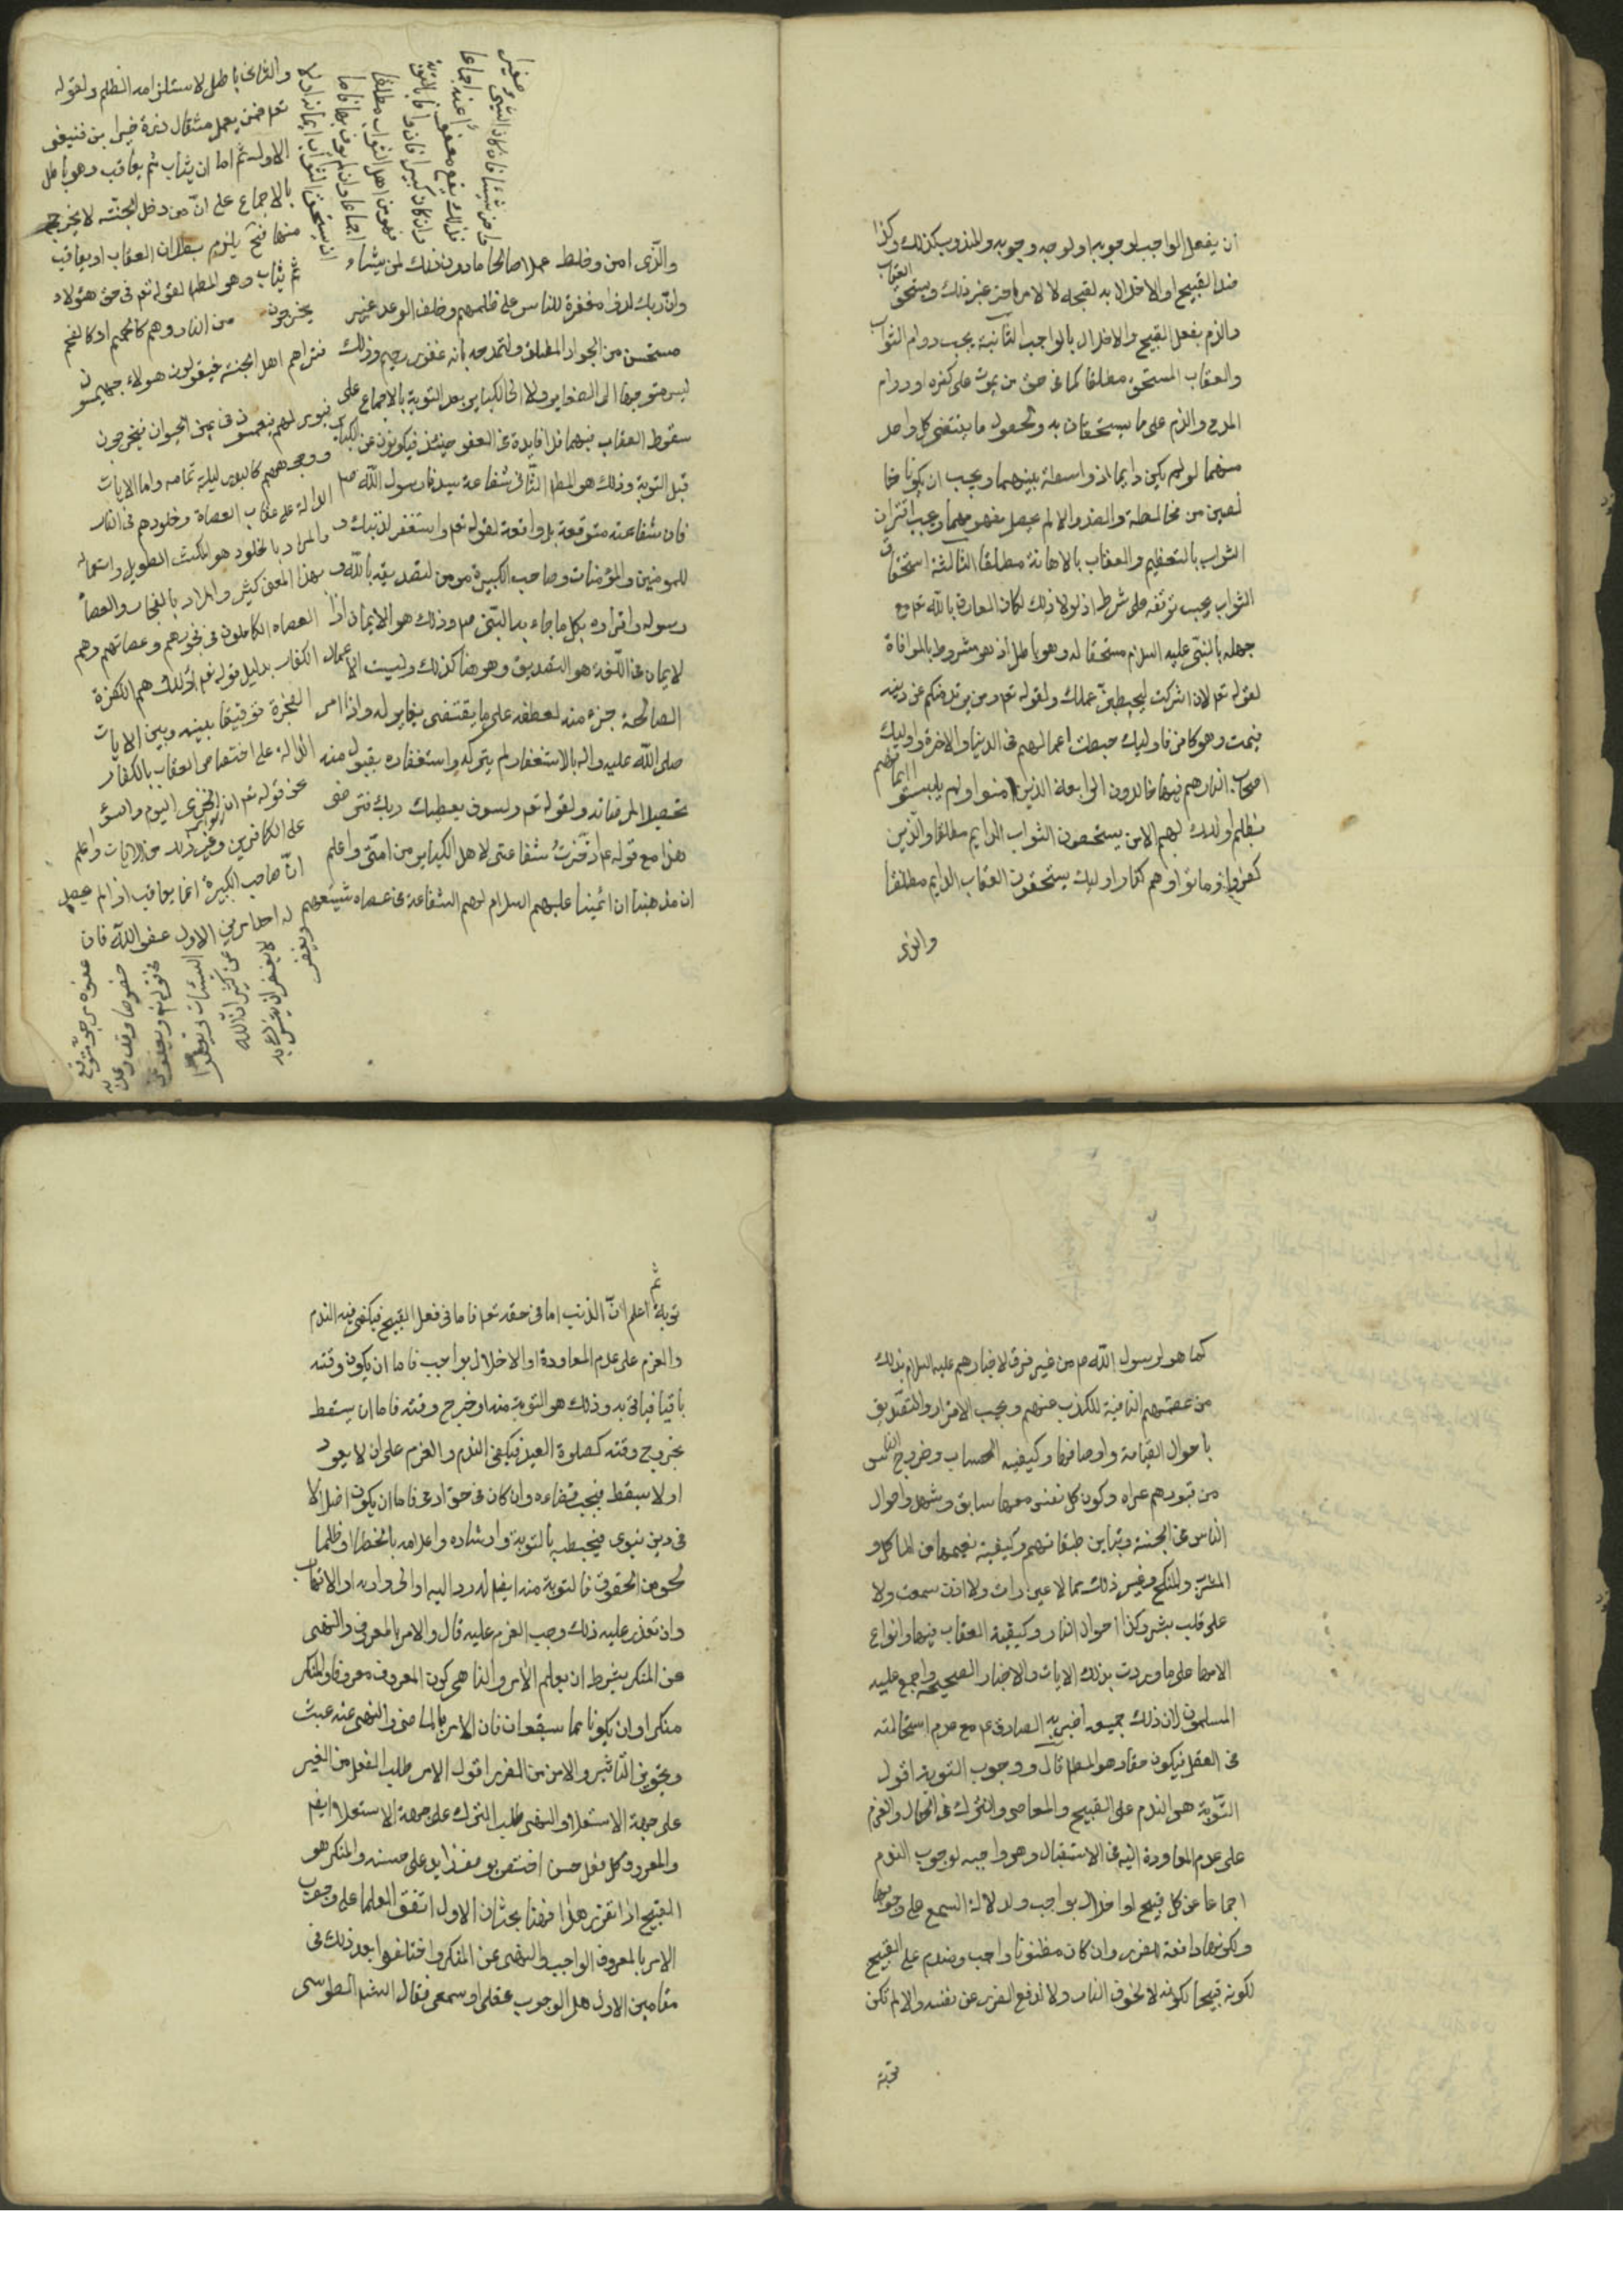 ان يفعل الواجب لوجوبه او لوجه وجوبه والمندوب كذلك وكذا
ضد القبيح او الاخلال به لقبحه لا لامر اخر غير ذلك ويستحق العقاب
والذم بفعل القبيح والاخلال بالواجب الثانية يجب دوام الثواب
والعقاب المستحق مطلقا كما فى حق من يموت على كفره او دوام
المدح والذم على ما يستحقان به ولحصول ما يقتضى كل واحد
منهما لو لم يكن دايما اذ واسطة بينهما ويجب ان يكونا خا
لصين من مخالطة والضد والا لم يحصل مفهومهما ويجب اقتران
الثواب بالتعظيم والعقاب بالاهانة مطلقا الثالثة استحقاق
الثواب يجب توقفه على شرط اذ لولا ذلك لكان العارف بالله تع مع
جهله بالنبى عليه السلام مستحقا له وهو باطل اذ هو مشروط بالموافاة
لقوله تع لان اشركت ليحبطن عملك ولقوله تع ومن يرتدد منكم عن دينه
فيمت وهو كافر فاوليك حبطت اعمالهم فى الدنيا والاخرة واوليك
اصحاب النار هم فيها خالدون الرابعة الذين امنوا ولم يلبسوا ايمانهم
بظلم اولئك لهم الامن يستحقون الثواب الدايم مطلقا والذين
كفروا وماتوا وهم كفار اوليك يستحقون العقاب الدايم مطلقا
والذى
والذى امن وخلط عملا صالحا ما دون ذلك لمن يشاء
وان ربك لذوا مغفرة للناس على ظلمهم وخلف الوعد غير
مستحسن من الجواد المطلق ولتمدحه بانه غفور رحيم وذلك
ليس متوجها الى الصغاير ولا الى الكباير بعد التوبة بالاجماع على
سقوط العقاب فيهما فلا فايدة فى العفو حينئذ فيكون عن الكباير
قبل التوبة وذلك هو المط الثانى شفاعة سيدنا رسول الله ص
فان شفاعته متوقعة بل واقعة لقوله تع واستغفر لذنبك و
للمومنين والمؤمنات وصاحب الكبيرة مومن لتصديقه بالله و
رسوله واقراره بكل ما جاء به النبى ص وذلك هو الايمان اذا
لايمان فى اللغة هو التصديق وهو هنا كذلك وليست الاعمال
الصالحة جزء منه لعطفه على ما يقتضى يغاير له واذا امر
صلى الله عليه واله بالاستغفار لم يتركه واستغفاره مقبول منه
تحصيلا لمرضاته ولقوله تع ولسوف يعطيك ربك فترضى
هذا مع قوله ع ادخرت شفاعتى لاهل الكباير من امتى واعلم
ان مذهبنا ان ائمتنا عليهم السلام لهم الشفاعة فى عصاه شيعتهم
صغير
واخر شيئا فان كان الشئ
فذلك يقع معفوا عنه اجماعا
وان كان كبيرا فان وافا بالتوبة
فهو من اهل الثواب مطلقا
اجماعا وان لم يوف بها فاما
ان يستحق الثواب ايمانه او لا
والثانى باطل لاستلزامه الظلم ولقوله
تع فمن يعمل مثقال ذرة خيرا يره فتعين
الاول ثم اما ان يثاب ثم يعاقب وهو باطل
بالاجماع على ان من دخل الجنة لا يخرج
منها فح يلزم بطلان العقاب او يعاقب
ثم يثاب وهو المط لقوله تع فى حق هؤلاء
يخرجون من النار وهم كالحمم او كالفحم
فتراهم اهل الجنة فيقولون هولاء جهنميون
فيومر لهم فيغمسون فى عين الحيوان فيخرجون
ووجههم كالبدر ليلة تمامه واما الايات
الدالة على عقاب العصاة وخلودهم فى النار
والمراد بالخلود هو المكث الطويل واستعماله
بهذا المعنى كثير والمراد بالفجار والعصاة
العصاه الكاملون فى فجورهم وعصاتهم وهم
الكفار بدليل قوله تع اولئك هم الكفرة
الفجرة توفيقا بينه وبين الايات
الدالة على اختصاص العقاب بالكفار
نحو قوله تع ان الخزى اليوم والسوء
على الكافرين وغير ذلك من الايات واعلم
ان صاحب الكبيرة انما يعاقب اذا لم يحصل
له احد امرين الاول عفو الله فان
عفوه مرجو متوقع
خصوصا وقد وعد به
فى قوله تع ويعفو عن
السيئات
عن كثير ان الله
لا يغفر ان يشرك به
ويغفر
كما هو لرسول الله ص من غير فرق لاخبارهم عليه السلام بذلك
من عصمتهم النافية للكذب عنهم ويجب الاقرار والتصديق
باحوال القيامة واوصافها وكيفيه الحساب وخروج الناس
من قبورهم عراه وكون كل نفس معها سايق وشهيد واحوال
الناس فى الجنة وتباين طبقاتهم وكيفية نعيمها من الماكل و
المشرب والمنكح وغير ذلك مما لا عين رات ولا اذن سمعت ولا
على قلب بشر وكذا احوال النار وكيفية العقاب فيها وانواع
الامها على ما وردت بذلك الايات والاخبار الصحيحة واجمع عليه
المسلمون لان ذلك جميعه اخبر به الصادق ع مع عدم استحالته
فى العقل فيكون حقا وهو المط قال ووجوب التوبة اقول
التوبة هو الندم على القبيح والمعاصى والترك فى الحال والعزم
على عدم المعاودة اليه فى الاستقبال وهو واجبه لوجوب الندم
اجماعا عن كل قبيح او اخلال بواجب ولدلالة السمع على وجوبها
ولكونها دافعة للضرر وان كان مظنونا واجب ويندم على القبيح
لكونه قبيحا لكونه لا لخوف النار ولا لدفع الضرر عن نفسه والا لم تكن
توبة
توبة ثم اعلم ان الذنب اما فى حقه تع فاما فى فعل القبيح فيكفى فيه الندم
والعزم على عدم المعاودة او الاخلال بواجب فاما ان يكون وقته
باقيا فياتى به وذلك هو التوبة منه او خرج وقته فاما ان يسقط
بخروج وقته كصلوة العيد فيكفى الندم والعزم على ان لا يعود
او لا يسقط فيجب قضاءه وان كان فى حق ادمى فاما ان يكون اضلالا
فى دين بتوى فيجب بالتوبة وارشاده واعلامه بالخطا او ظلما
لحق من الحقوق فالتوبة منه ايض له رد اليه او الى وارثه او الاتهاب
وان تعذر عليه ذلك وجب العزم عليه قال والامر بالمعروف والنهى
عن المنكر بشرط ان يعلم الامر والناهى كون المعروف معروفا والمنكر
منكرا وان يكونا مما سيقعان فان الامر بالماضى والنهى عنه عبث
وتجويز التاثير والامن من الضرر اقول الامر طلب الفعل من الغير
على جهة الاستعلا والنهى طلب الترك على جهة الاستعلا ايض
والمعروف كل فعل حسن اختص بوصف زايد على حسنه والمنكر هو
القبيح اذا تقرر هذا فهنا بحثان الاول اتفق العلما على وجوب
الامر بالمعروف الواجب والنهى عن المنكر واختلفوا بعد ذلك فى
مقامين الاول هل الوجوب عقلى او سمعى فقال الشيخ الطوسى